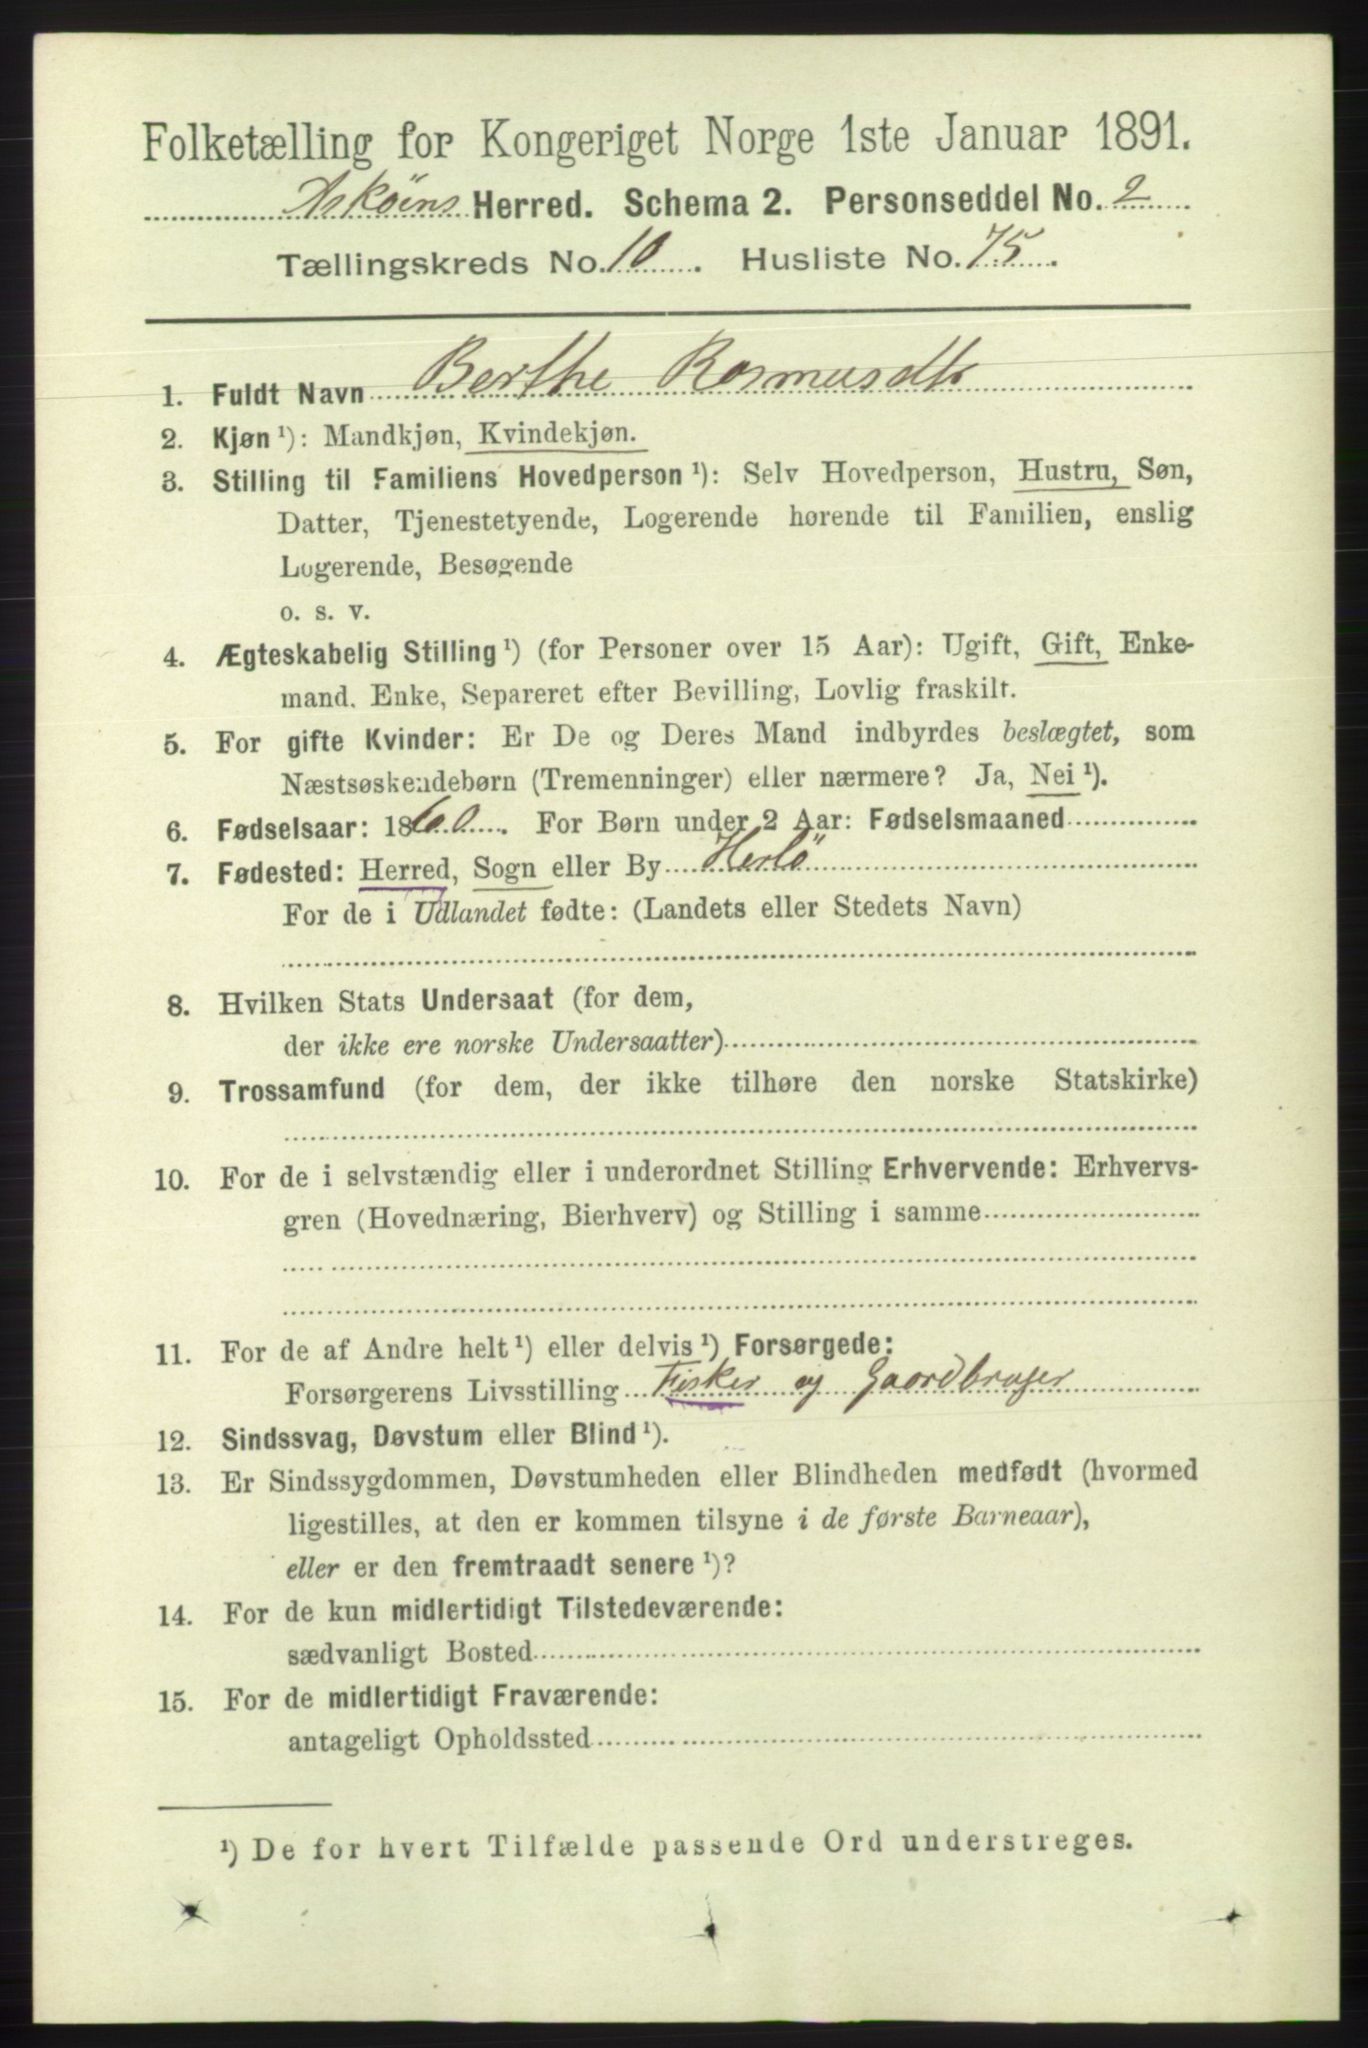 Folketælling for Kongeriget Norge 1ste Januar 1891.
Askøens Herred. Schema 2. Personseddel No. 2
Tællingskreds No. 10. Husliste No. 75.
1. Fuldt Navn Berthe Rasmusdtr
2. Kjøn ¹): Mandkjøn, Kvindekjøn.
3. Stilling til Familiens Hovedperson ¹): Selv Hovedperson, Hustru, Søn,
Datter, Tjenestetyende, Logerende hørende til Familien, enslig
Logerende, Besøgende
o. s. v.
4. Ægteskabelig Stilling ¹) (for Personer over 15 Aar): Ugift, Gift, Enke-
mand, Enke, Separeret efter Bevilling, Lovlig fraskilt.
5. For gifte Kvinder: Er De og Deres Mand indbyrdes beslægtet, som
Næstsøskendebørn (Tremenninger) eller nærmere? Ja, Nei ¹).
6. Fødselsaar: 1860. For Børn under 2 Aar: Fødselsmaaned
7. Fødested: Herred, Sogn eller By Herlö
For de i Udlandet fødte: (Landets eller Stedets Navn)
8. Hvilken Stats Undersaat (for dem,
der ikke ere norske Undersaatter)
9. Trossamfund (for dem, der ikke tilhøre den norske Statskirke)
10. For de i selvstændig eller i underordnet Stilling Erhvervende: Erhvervs-
gren (Hovednæring, Bierhverv) og Stilling i samme
11. For de af Andre helt ¹) eller delvis ¹) Forsørgede:
Forsørgerens Livsstilling Fisker og Gaardbruger
12. Sindssvag, Døvstum eller Blind ¹).
13. Er Sindssygdommen, Døvstumheden eller Blindheden medfødt (hvormed
ligestilles, at den er kommen tilsyne i de første Barneaar),
eller er den fremtraadt senere ¹)?
14. For de kun midlertidigt Tilstedeværende:
sædvanligt Bosted
15. For de midlertidigt Fraværende:
antageligt Opholdssted
¹) De for hvert Tilfælde passende Ord understreges.